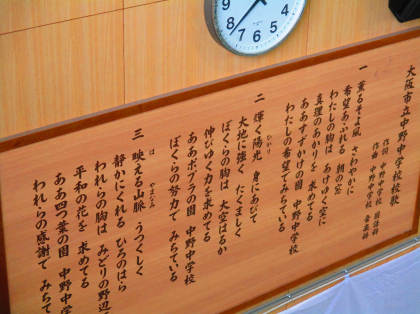 大阪市立中野中学校校歌
作詞 中野中学校 国語科
作曲 中野中学校 音楽科
一 薫るそよ風 さわやかに
希望あふれる 朝の窓
わたしの胸は あけゆく空に
真理のあかりを 求めてる
ああすずかけの園 中野中学校
わたしの希望で みちている
二 輝く陽光 身にあびて
ひかり
大地に強く たくましく
ぼくらの胸は 大空はるか
伸びゆく力を 求めてる
ああポプラの園 中野中学校
ぼくらの努力で みちている
三 映える山脈 うつくしく
は やまなみ
静かにくれる ひろのはら
われらの胸は みどりの野辺
平和の花を 求めてる
ああ四つ葉の園 中野中学
われらの感謝で みちて